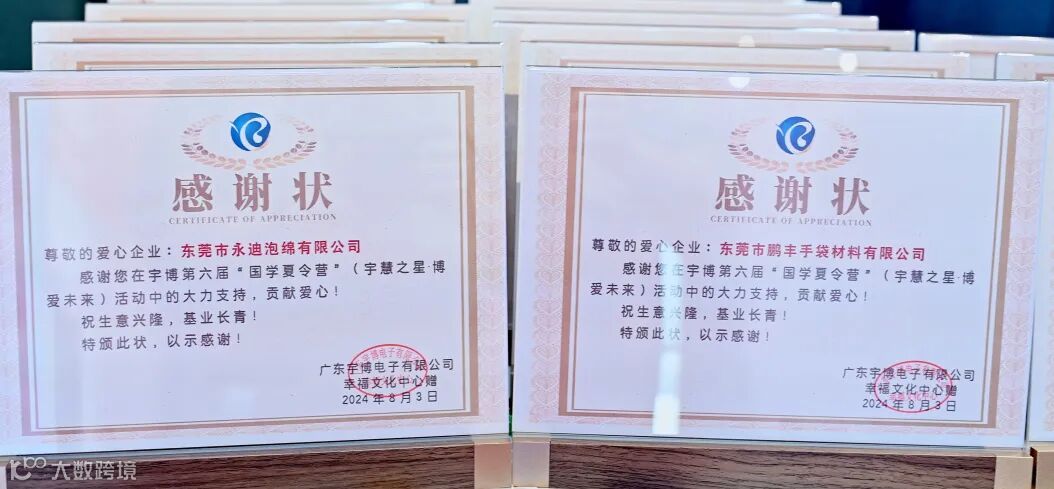 感谢状
CERTIFICATE OF APPRECIATION
尊敬的爱心企业：东莞市永迪泡绵有限公司
感谢您在宇博第六届“国学夏令营”（宇慧之星·博
爱未来）活动中的大力支持，贡献爱心！
祝生意兴隆，基业长青！
特颁此状，以示感谢！
广东宇博电子有限公司
幸福文化中心赠
2024年8月3日
感谢状
CERTIFICATE OF APPRECIATION
尊敬的爱心企业：东莞市鹏丰手袋材料有限公司
感谢您在宇博第六届“国学夏令营”（宇慧之星·博
爱未来）活动中的大力支持，贡献爱心！
祝生意兴隆，基业长青！
特颁此状，以示感谢！
广东宇博电子有限公司
幸福文化中心赠
2024年8月3日
大数跨境